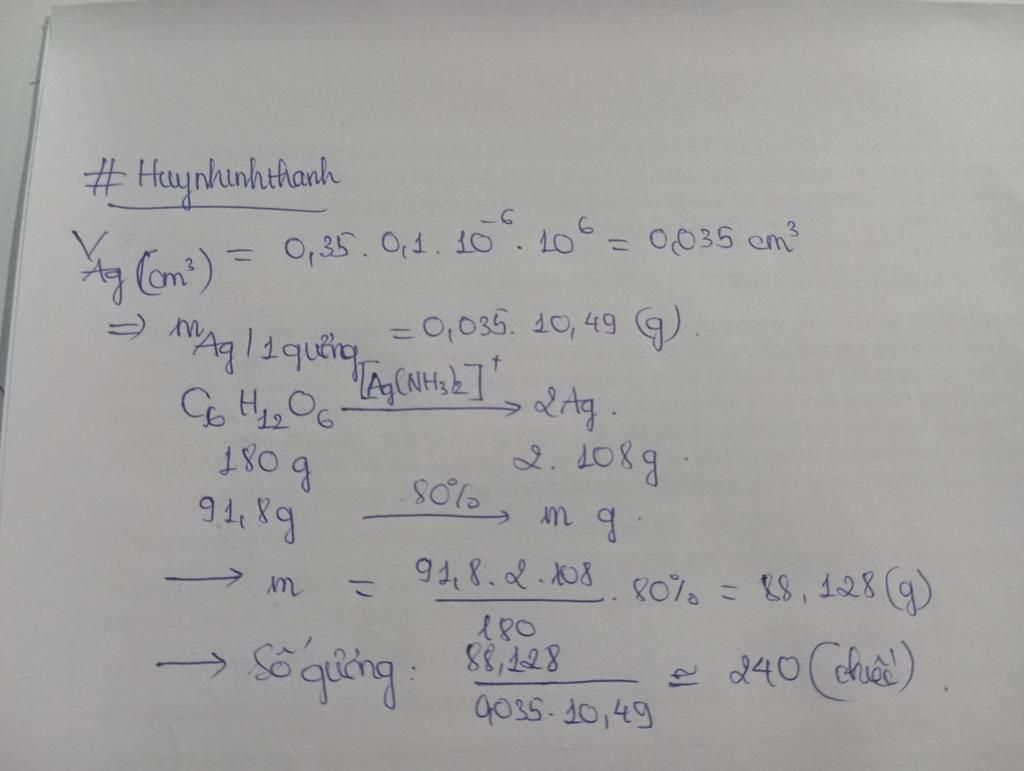 # Huynhinhthanh
V Ag (cm³) = 0,35. 0,1. 10⁻⁶. 10⁶ = 0,035 cm³
=> m Ag/1 gương = 0,035. 10,49 (g).
C₆H₁₂O₆ —[Ag(NH₃)₂]⁺→ 2Ag.
180 g 2. 108 g.
91,8g —80%→ m g.
→ m = 91,8. 2. 108 / 180 . 80% = 88,128 (g)
→ Số gương: 88,128 / 0,035. 10,49 ≃ 240 (chiếc).